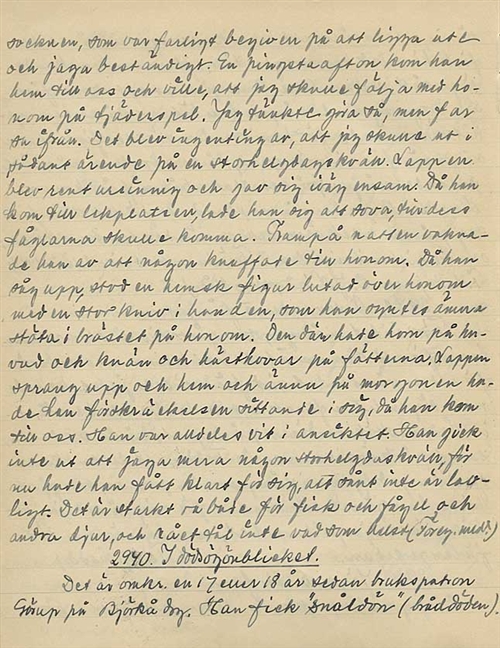 socknen, som var farligt begiven på att ligga ute
och jaga beständigt. En pingstafton kom han
hem till oss och ville, att jag skulle följa med ho-
nom på tjäderspel. Jag tänkte göra så, men far
sa ifrån. Det blev ingenting av, att jag skulle ut i
sådant ärende på en storhelgdagskväll. Lappen
blev rent ursinnig och gav sig iväg ensam. Då han
kom till lekplatsen, lade han sig att sova, tilldess
fåglarna skulle komma. Frampå natten vakna-
de han av att någon knuffade till honom. Då han
såg upp, stod en hemsk figur lutad över honom
med en stor kniv i handen, som han syntes ämna
stöta i bröstet på honom. Den där hade horn på hu-
vud och knän och hästhovar på fötterna. Lappen
sprang upp och hem och ännu på morgonen ha-
de han förskräckelsen sittande i sig, då han kom
till oss. Han var alldeles vit i ansiktet. Han gick
inte ut att jaga mera någon storhelgdaskväll, för
nu hade han fått klart för sig, att sånt inte är lov-
ligt. Det är starkt rå både för fisk och fågel och
andra djur, och rået tål inte vad som helst (Föreg. medd.)
2940. I dödsögonblicket.
Det är omkr. en 17 eller 18 år sedan brukspatron
på Björkå dog. Han fick "snåldön" (bråddöden).